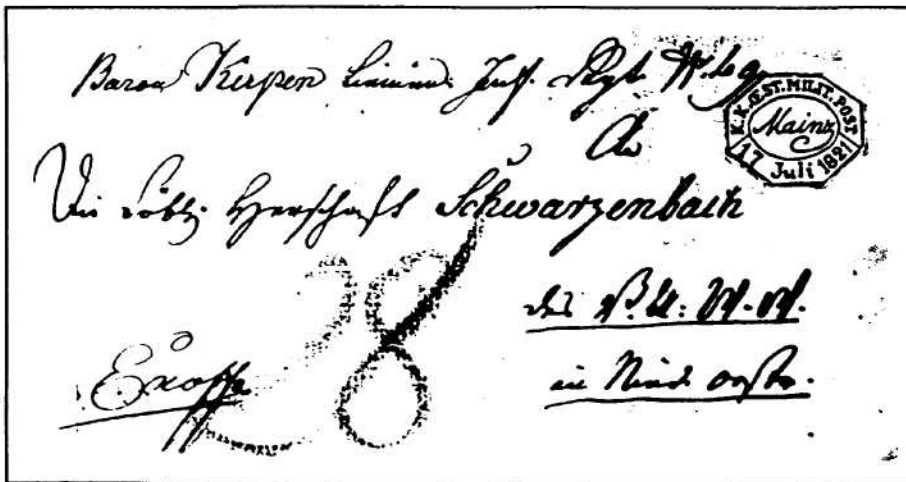 Baron Kerpen Linien Inft. Rgt. No. 49
K.K. ŒST. MILIT. POST
Mainz
17 Juli 1821
An
Die Löbl. Herrschaft Schwarzenbach
28
des V.U.W.W.
Ex offo
in Nied. oestr.